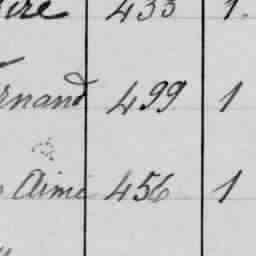 433 1.
rnand 499 1
Aimé 456 1